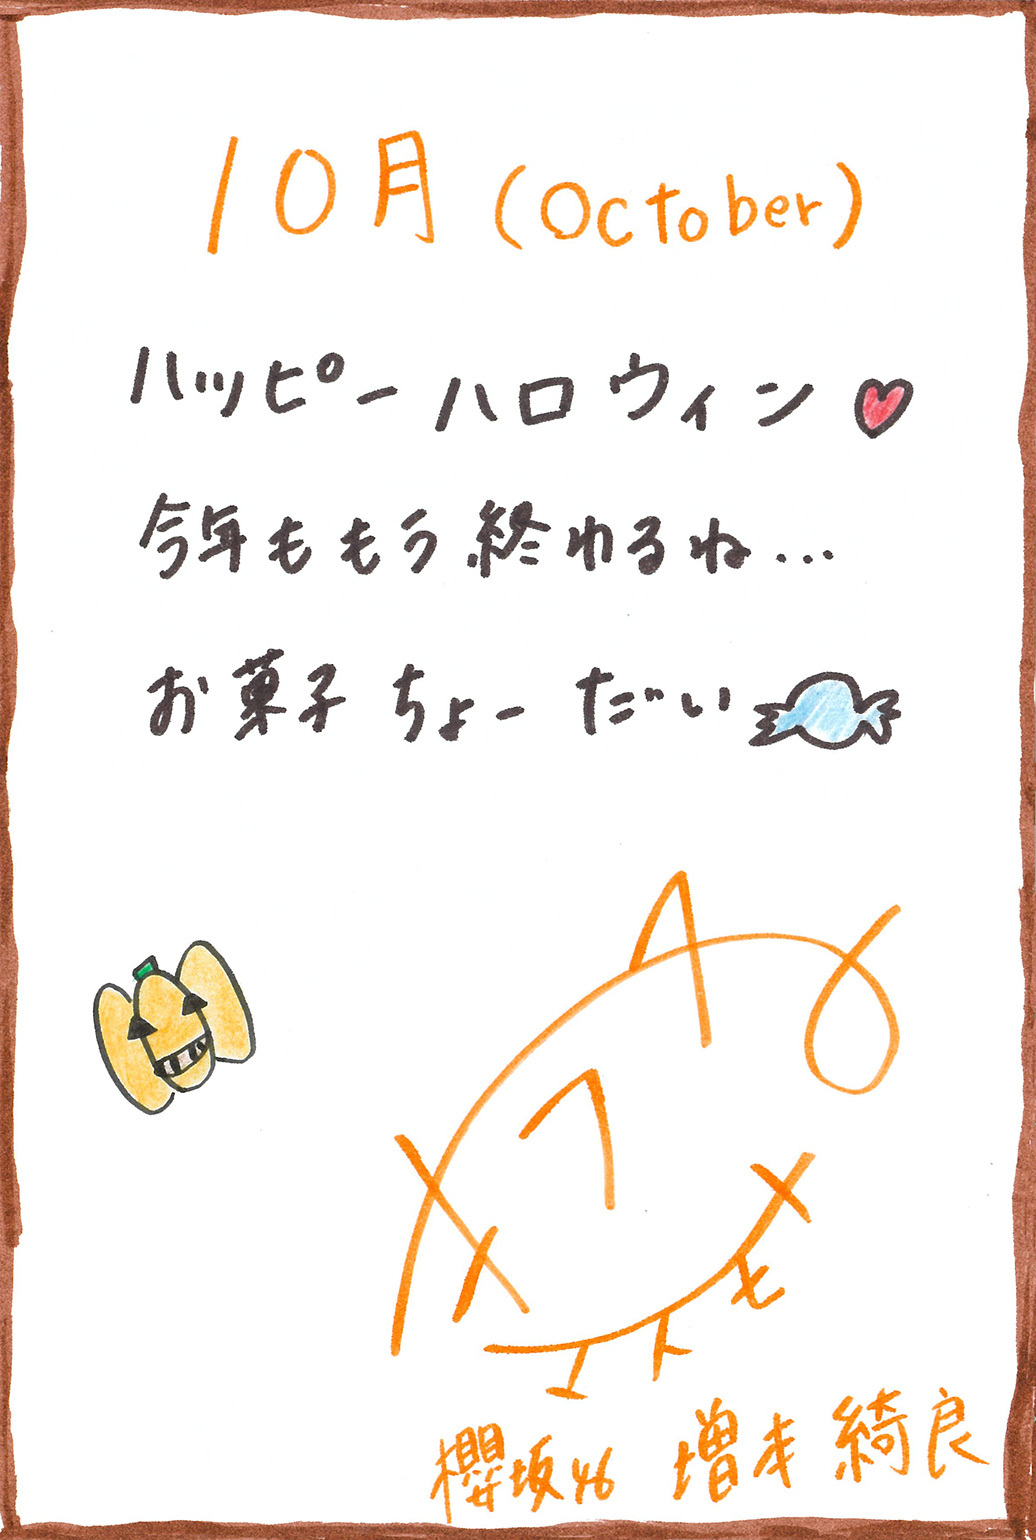 10月(October)
ハッピーハロウィン
今年ももう終わるね...
お菓子ちょーだい
櫻坂46 増本綺良